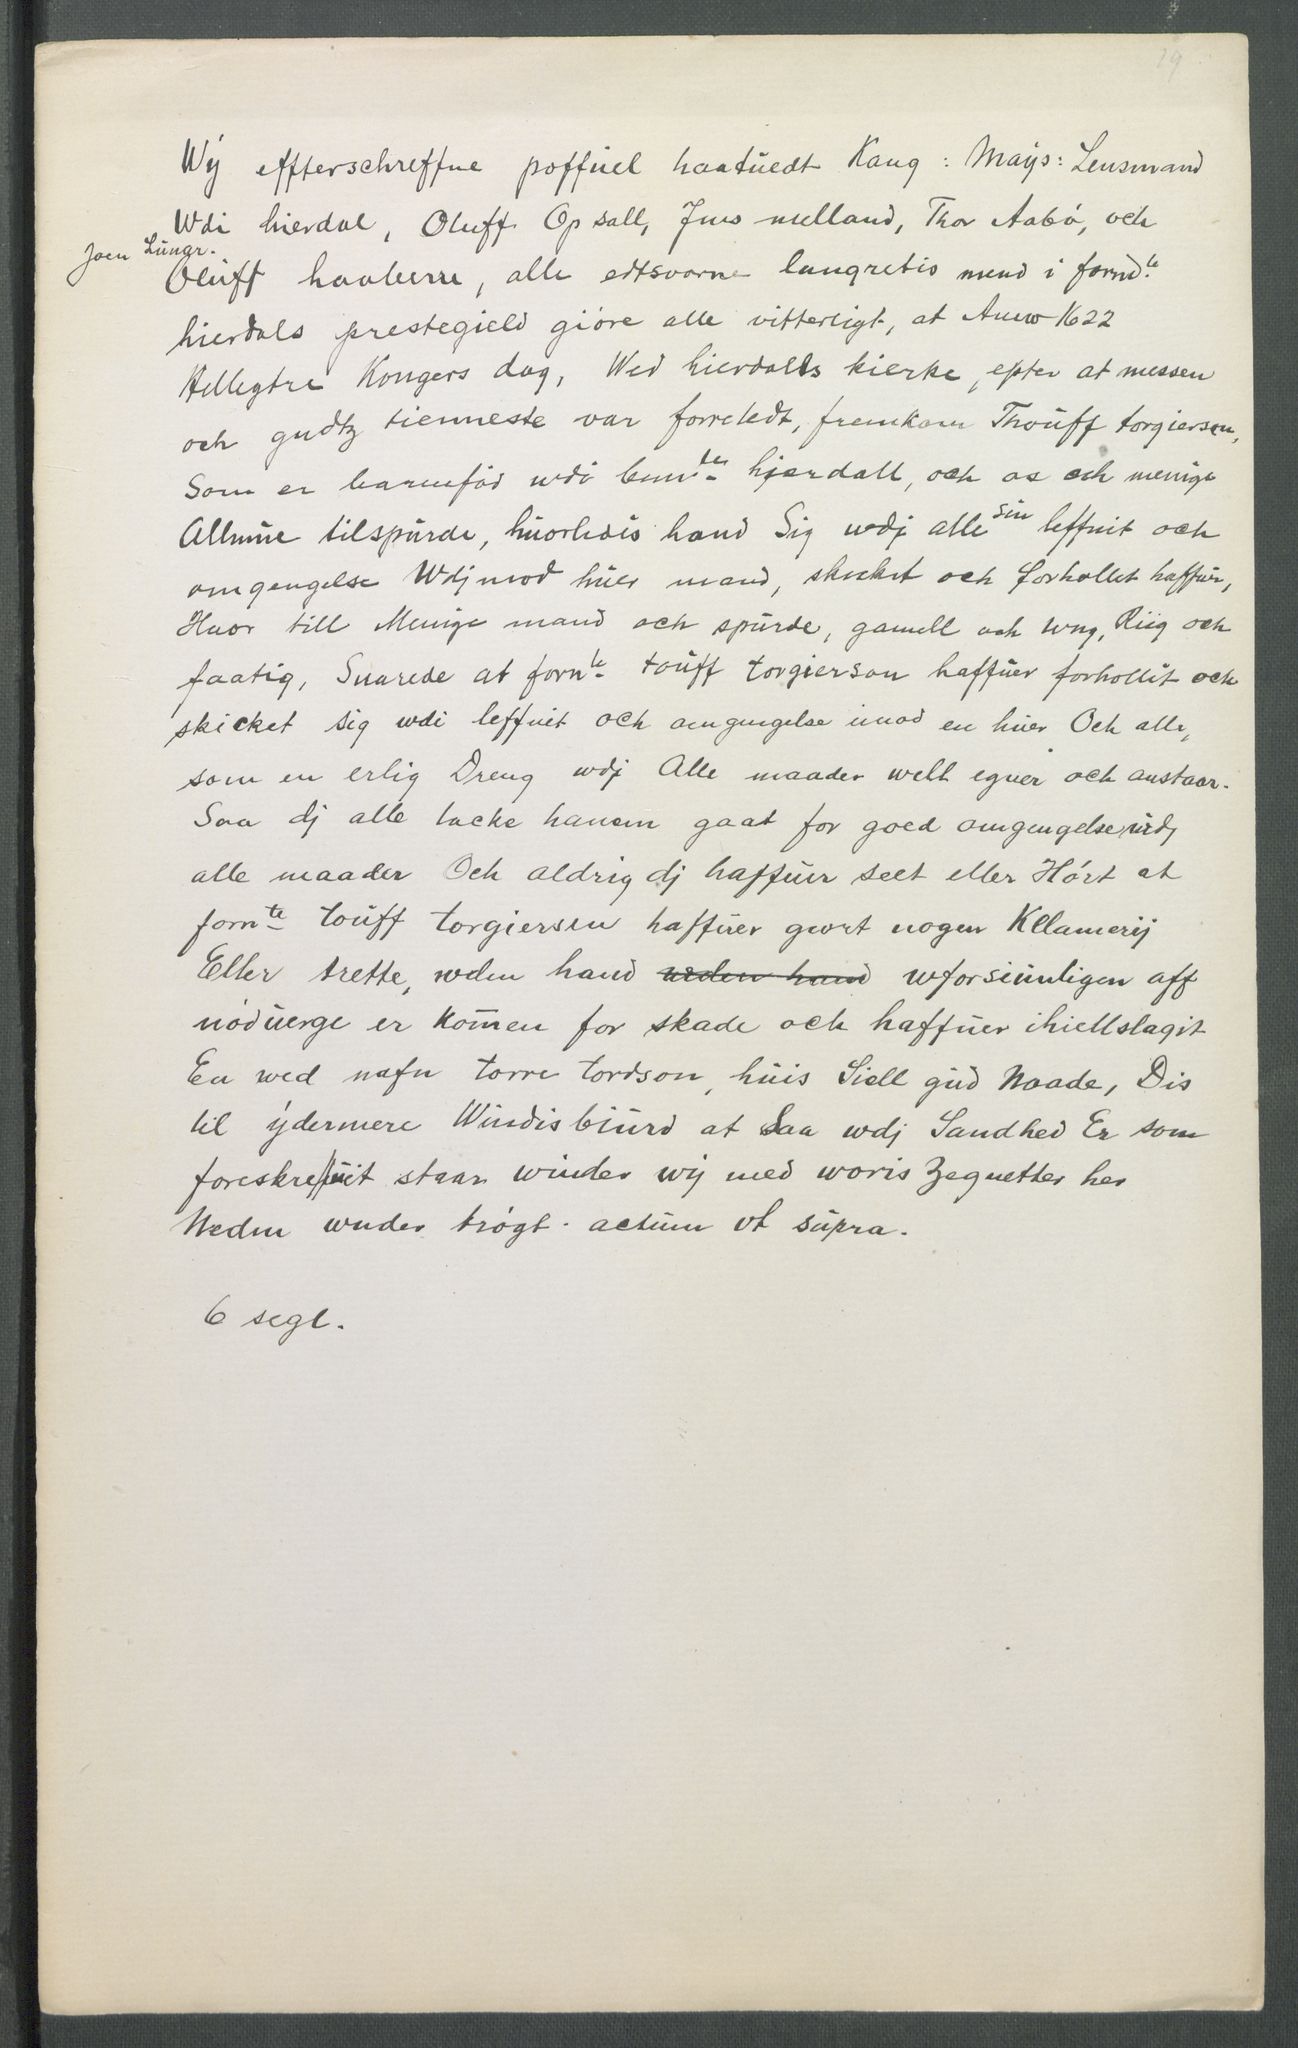 19
Wÿ effterschreffne poffuel haatuedt Kang: Mays: Lensmand
Wdi hierdal, Oluff Opsall, Jens melland, Thor Aabö, och
Joen Lüngr.
Olüff haaberre, alle edtsvorne laugretis mend i fornd te
hierdals prestegield giöre alle vitterligt, at Anno 1622
Hellegtre Kongers dag, Wed hierdalls kierke, epter at messen
och gudtz tienneste var forretedt, fremkom Thoüff torgiersen,
Som er barnefód wdi bem de hierdall, och os och menige
Allmüe tilspürde, hüorledis hand Sig wdj alle sin leffnit och
omgengelse Wdjmod hüer mand, skicket och forhollit haffüer,
Huor till Menige mand och spürde, gamell och wng, Riig och
faatig, Suarede at forn te toüff torgierson haffüer forhollit och
skicket sig wdi leffnit och omgengelse imod en hüer Och alle,
som en erlig Dreng wdj Alle maader well egner och anstaar.
Saa dj alle tacke hanem gaat for goed omgengelse ürdj
alle maader Och aldrig dj haffüer seet eller Hört at
forn te toüff torgiersen haffüer giort nogen Kllamerij
Eller trette, wden hand wden hand wforsiünligen aff
nödüerge er komen for skade och haffüer ihiellslagit
En wed nafn torre tordson, hüis Siell güd Naade, Dis
til ÿdermere Windisbiürd at Saa wdj Sandhed Er som
foreskreffüit staar winder wij med woris Zegnetter her
Neden wnder trögt. actüm vt süpra.
6 segl.